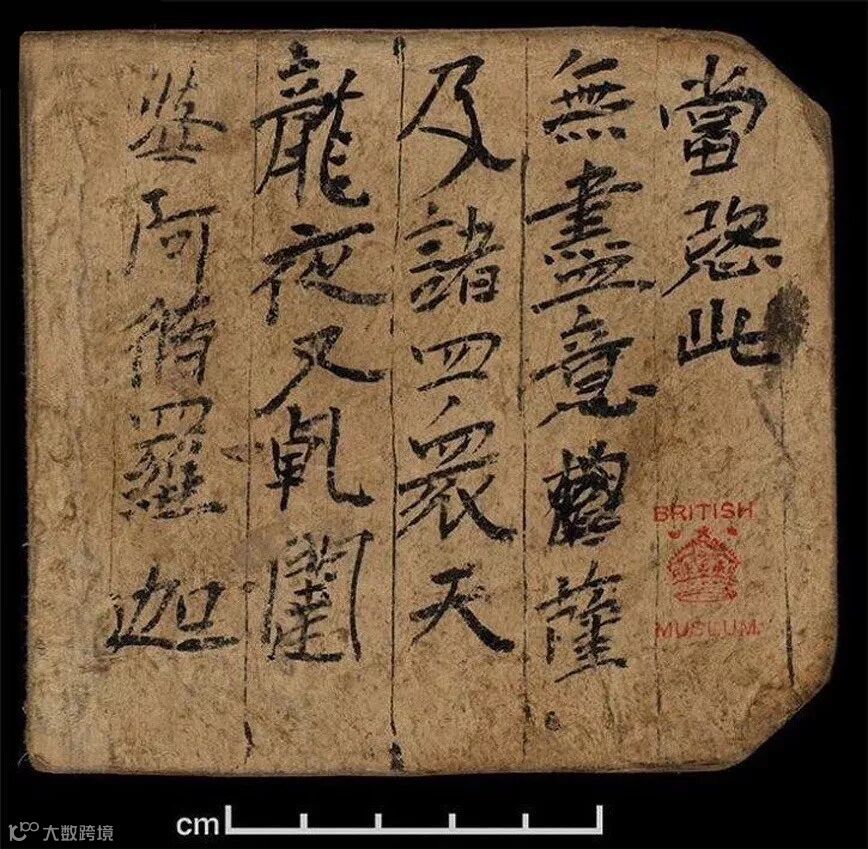 當愍此
無盡意菩薩
及諸四衆天
龍夜叉乹闥
婆阿脩羅迦
BRITISH
MUSEUM
cm
大数跨境